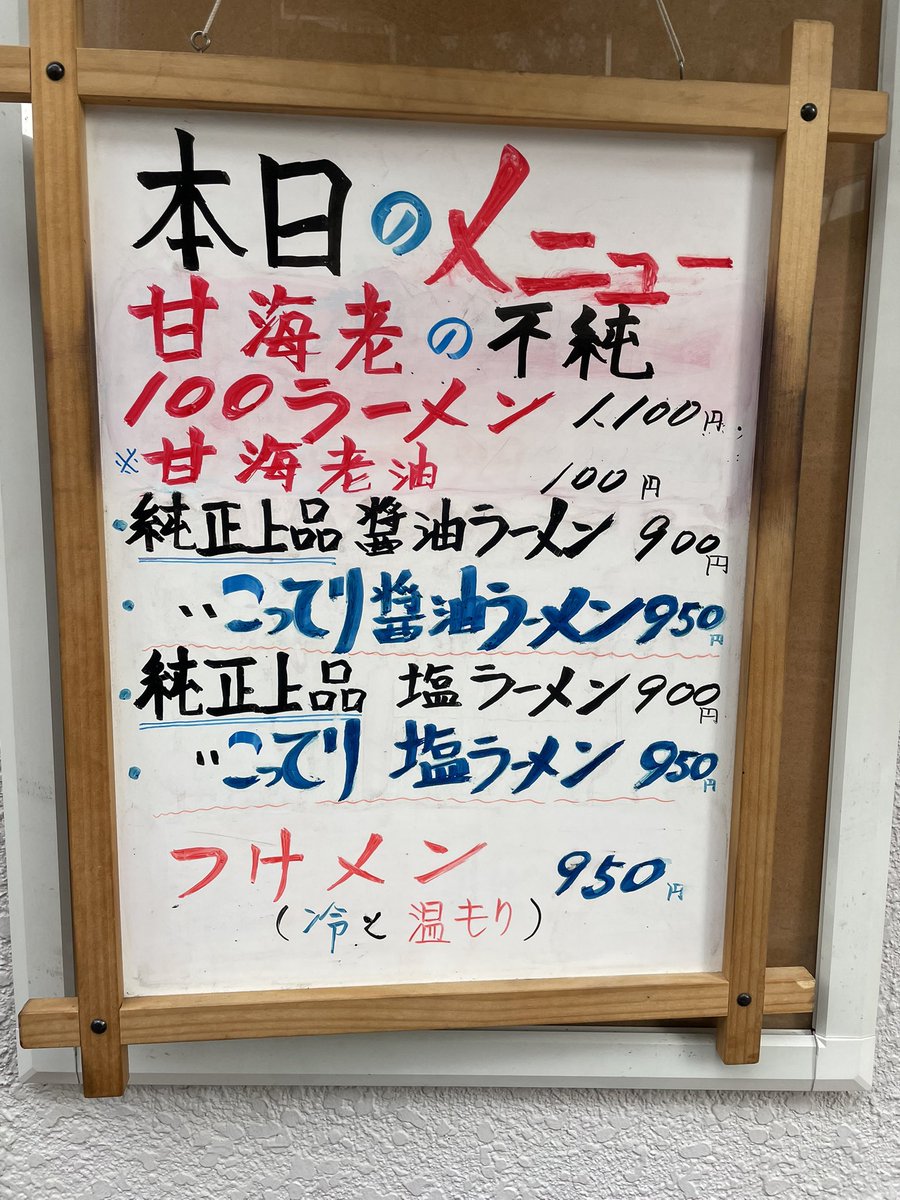 本日のメニュー
甘海老の不純
100ラーメン 1,100円
※甘海老油 100円
・純正上品醤油ラーメン 900円
・〃こってり醤油ラーメン 950円
・純正上品 塩ラーメン 900円
・〃こってり 塩ラーメン 950円
つけメン 950円
(冷と温もり)